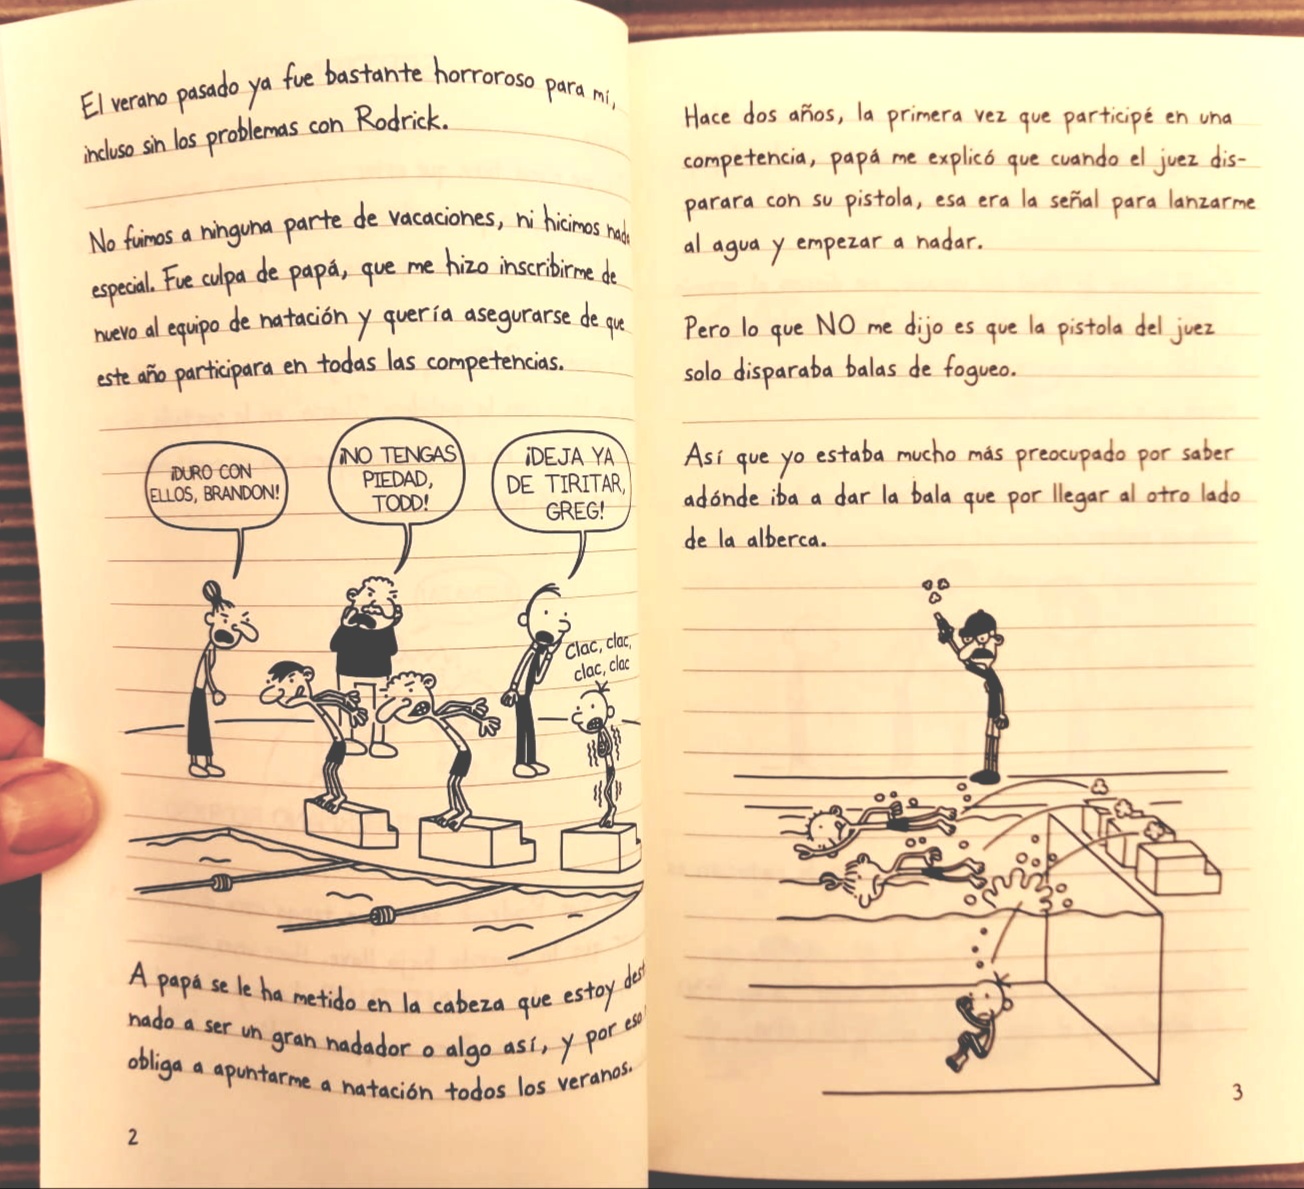 El verano pasado ya fue bastante horroroso para mí,
incluso sin los problemas con Rodrick.
No fuimos a ninguna parte de vacaciones, ni hicimos nada
especial. Fue culpa de papá, que me hizo inscribirme de
nuevo al equipo de natación y quería asegurarse de que
este año participara en todas las competencias.
¡DURO CON
ELLOS, BRANDON!
¡NO TENGAS
PIEDAD,
TODD!
¡DEJA YA
DE TIRITAR,
GREG!
Clac, clac,
clac, clac
A papá se le ha metido en la cabeza que estoy desti
nado a ser un gran nadador o algo así, y por eso
obliga a apuntarme a natación todos los veranos.
2
Hace dos años, la primera vez que participé en una
competencia, papá me explicó que cuando el juez dis-
parara con su pistola, esa era la señal para lanzarme
al agua y empezar a nadar.
Pero lo que NO me dijo es que la pistola del juez
solo disparaba balas de fogueo.
Así que yo estaba mucho más preocupado por saber
adónde iba a dar la bala que por llegar al otro lado
de la alberca.
3